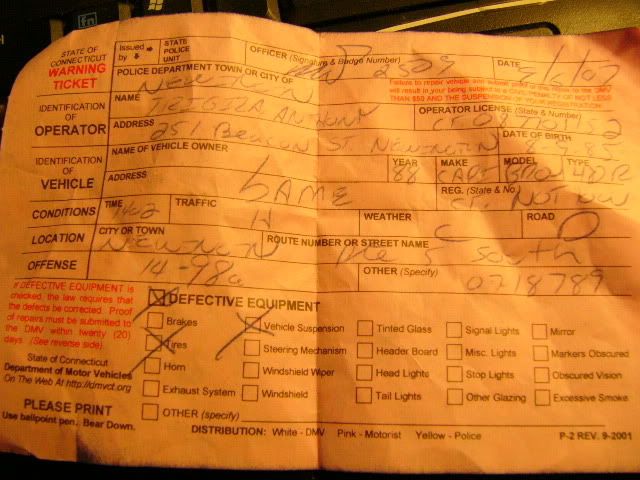 STATE OF CONNECTICUT
WARNING TICKET
Issued by
STATE POLICE UNIT
OFFICER (Signature & Badge Number)
DATE
POLICE DEPARTMENT TOWN OR CITY OF
NEWINGTON
Failure to repair vehicle and submit proof of the repair to the DMV
will result in your being subject to a
THAN $50 AND THE SUSPENSION OF YOUR REGISTRATION
IDENTIFICATION OF OPERATOR
NAME
ANTHONY
OPERATOR LICENSE (State & Number)
ADDRESS
251 BEACON ST. NEWINGTON
DATE OF BIRTH
IDENTIFICATION OF VEHICLE
NAME OF VEHICLE OWNER
YEAR
88
MAKE
MODEL
TYPE
4DR
ADDRESS
SAME
REG. (State & No.
CT. NOT
CONDITIONS
TIME
1402
TRAFFIC
H
WEATHER
C
ROAD
D
LOCATION
CITY OR TOWN
NEWINGTON
ROUTE NUMBER OR STREET NAME
Rte 5 South
OFFENSE
14-98a
OTHER (Specify)
0718789
If DEFECTIVE EQUIPMENT is
checked, the law requires that
the defects be corrected. Proof
of repairs must be submitted to
the DMV within twenty (20)
days. (See reverse side).
State of Connecticut
Department of Motor Vehicles
On The Web At http://dmvct.org
PLEASE PRINT
Use ballpoint pen. Bear Down.
DEFECTIVE EQUIPMENT
Brakes
Tires
Horn
Exhaust System
OTHER (specify)
Vehicle Suspension
Steering Mechanism
Windshield Wiper
Windshield
Tinted Glass
Header Board
Head Lights
Tail Lights
Signal Lights
Misc. Lights
Stop Lights
Other Glazing
Mirror
Markers Obscured
Obscured Vision
Excessive Smoke
DISTRIBUTION: White - DMV Pink - Motorist Yellow - Police
P-2 REV. 9-2001